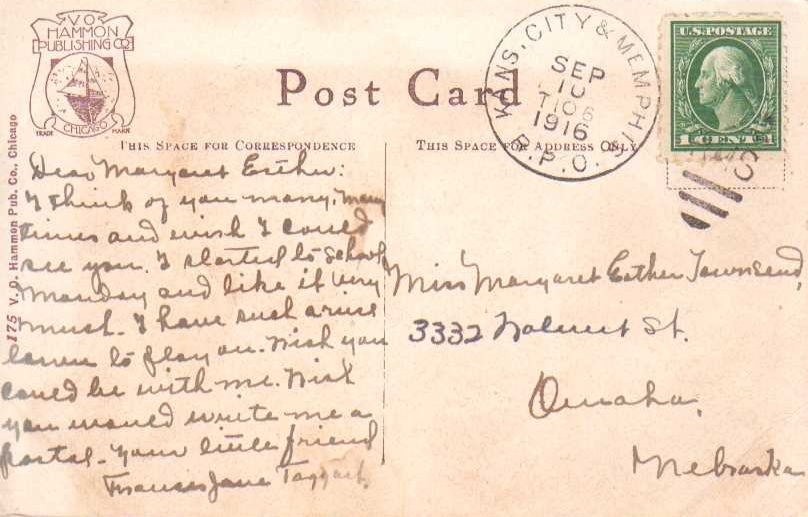 V.O.
HAMMON
PUBLISHING CO
TRADE CHICAGO MARK
Post Card
KANS. CITY & MEMPHIS
SEP
10
1916
R.P.O.
U.S. POSTAGE
1 CENT 1
THIS SPACE FOR CORRESPONDENCE
THIS SPACE FOR ADDRESS ONLY
175 V. O. Hammon Pub. Co., Chicago
Dear Margaret Esther:
I think of you many, many
times and wish I could
see you. I started to school
Monday and like it very
much. I have such a nice
lawn to play on. Wish you
could be with me. Wish
you would write me a
postal. Your little friend
Frances Jane Taggart.
Miss Margaret Esther Townsend,
3332 Walnut St.
Omaha,
Nebraska